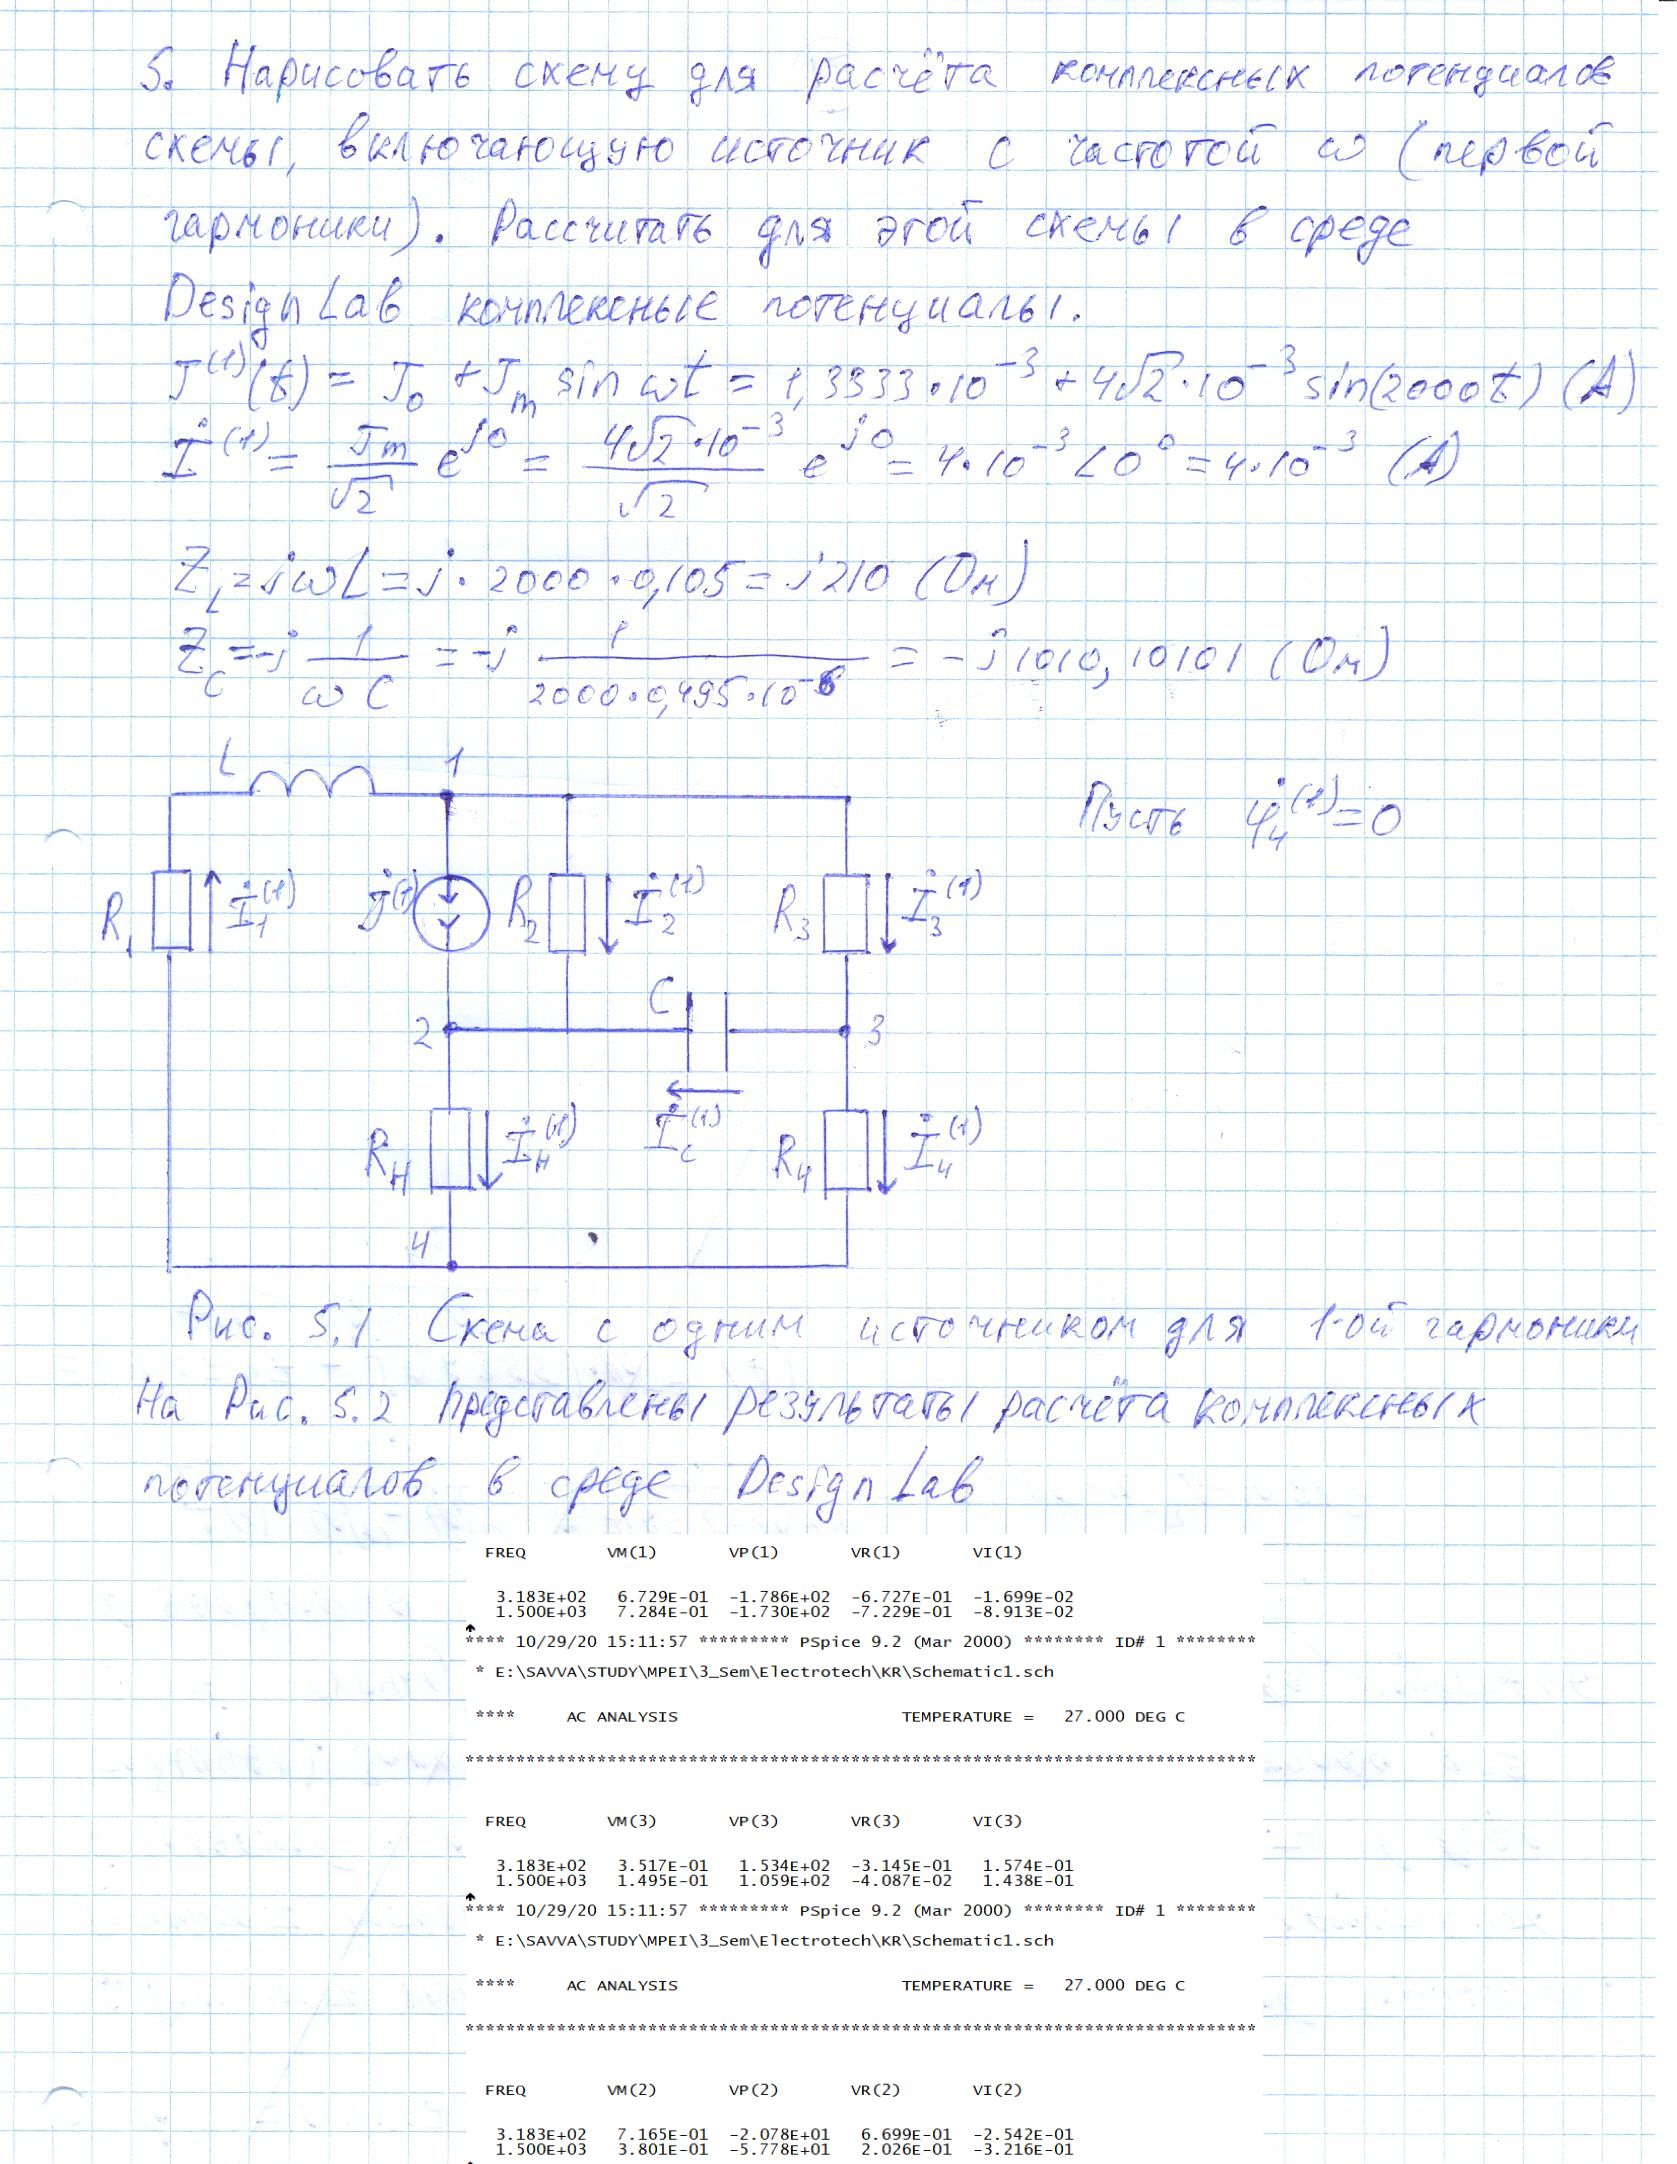 5. Нарисовать схему для расчёта комплексных потенциалов
схемы, включающую источник с частотой ω (первой
гармоники). Рассчитать для этой схемы в среде
DesignLab комплексные потенциалы.
J⁽¹⁾(t) = J₀ + Jₘ sin ωt = 1,3333·10⁻³ + 4√2·10⁻³ sin(2000t) (А)
İ⁽¹⁾ = Jₘ/√2 e^j0 = 4√2·10⁻³/√2 e^j0 = 4·10⁻³ ∠0° = 4·10⁻³ (А)
Z_L = jωL = j·2000·0,105 = j210 (Ом)
Z_C = -j 1/ωC = -j 1/2000·0,495·10⁻⁶ = -j1010,10101 (Ом)
L 1
Пусть φ̇₄⁽¹⁾=0
R₁ İ₁⁽¹⁾ J̇⁽¹⁾ R₂ İ₂⁽¹⁾ R₃ İ₃⁽¹⁾
C
2 3
R_H İ_H⁽¹⁾ İ_C⁽¹⁾ R₄ İ₄⁽¹⁾
4
Рис. 5.1 Схема с одним источником для 1-ой гармоники
На Рис. 5.2 представлены результаты расчёта комплексных
потенциалов в среде DesignLab
FREQ VM(1) VP(1) VR(1) VI(1)
3.183E+02 6.729E-01 -1.786E+02 -6.727E-01 -1.699E-02
1.500E+03 7.284E-01 -1.730E+02 -7.229E-01 -8.913E-02
**** 10/29/20 15:11:57 ********* PSpice 9.2 (Mar 2000) ******** ID# 1 ********
* E:\SAVVA\STUDY\MPEI\3_Sem\Electrotech\KR\Schematic1.sch
**** AC ANALYSIS TEMPERATURE = 27.000 DEG C
******************************************************************************
FREQ VM(3) VP(3) VR(3) VI(3)
3.183E+02 3.517E-01 1.534E+02 -3.145E-01 1.574E-01
1.500E+03 1.495E-01 1.059E+02 -4.087E-02 1.438E-01
**** 10/29/20 15:11:57 ********* PSpice 9.2 (Mar 2000) ******** ID# 1 ********
* E:\SAVVA\STUDY\MPEI\3_Sem\Electrotech\KR\Schematic1.sch
**** AC ANALYSIS TEMPERATURE = 27.000 DEG C
******************************************************************************
FREQ VM(2) VP(2) VR(2) VI(2)
3.183E+02 7.165E-01 -2.078E+01 6.699E-01 -2.542E-01
1.500E+03 3.801E-01 -5.778E+01 2.026E-01 -3.216E-01